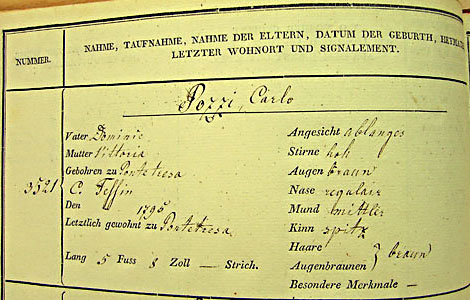 NUMMER.
NAHME, TAUFNAHME, NAHME DER ELTERN, DATUM DER GEBURTH, HEYMATH
LETZTER WOHNORT UND SIGNALEMENT.
Pozzi, Carlo
3521
Vater Dominic
Mutter Vittoria
Gebohren zu Pontetresa
C. Tessin
Den 1795
Letztlich gewohnt zu Pontetresa
Lang 5 Fuss 8 Zoll — Strich.
Angesicht ablanges
Stirne hoh
Augen braun
Nase regulair
Mund mittler
Kinn spitz
Haare
Augenbraunen } braun
Besondere Merkmale —